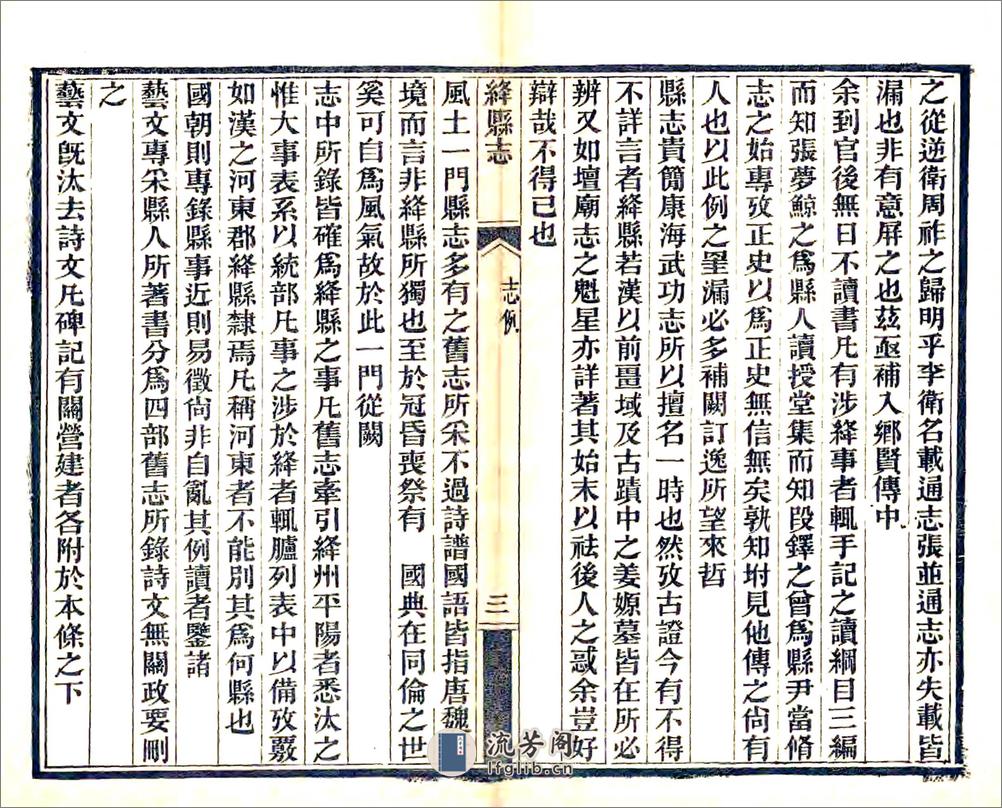 之從逆衛周祚之歸明乎李衛名載通志張並通志亦失載皆
漏也非有意屏之也茲亟補入鄉賢傳中
余到官後無日不讀書凡有涉絳事者輒手記之讀綱目三編
而知張夢鯨之爲縣人讀授堂集而知段鐸之曾爲縣尹當脩
志之始專攷正史以爲正史無信無矣孰知坿見他傳之尙有
人也以此例之罣漏必多補闕訂逸所望來哲
縣志貴簡康海武功志所以擅名一時也然攷古證今有不得
不詳言者絳縣若漢以前畺域及古蹟中之姜嫄墓皆在所必
辨又如壇廟志之魁星亦詳著其始末以祛後人之惑余豈好
辯哉不得已也
絳縣志
志例
三
風土一門縣志多有之舊志所采不過詩譜國語皆指唐魏
境而言非絳縣所獨也至於冠昏喪祭有 國典在同倫之世
奚可自爲風氣故於此一門從闕
志中所錄皆確爲絳縣之事凡舊志牽引絳州平陽者悉汰之
惟大事表系以統部凡事之涉於絳者輒臚列表中以備攷覈
如漢之河東郡絳縣隸焉凡稱河東者不能別其爲何縣也
國朝則專錄縣事近則易徵尙非自亂其例讀者鑒諸
藝文專采縣人所著書分爲四部舊志所錄詩文無關政要刪
之
藝文旣汰去詩文凡碑記有關營建者各附於本條之下
流芳阁
lfglib.cn